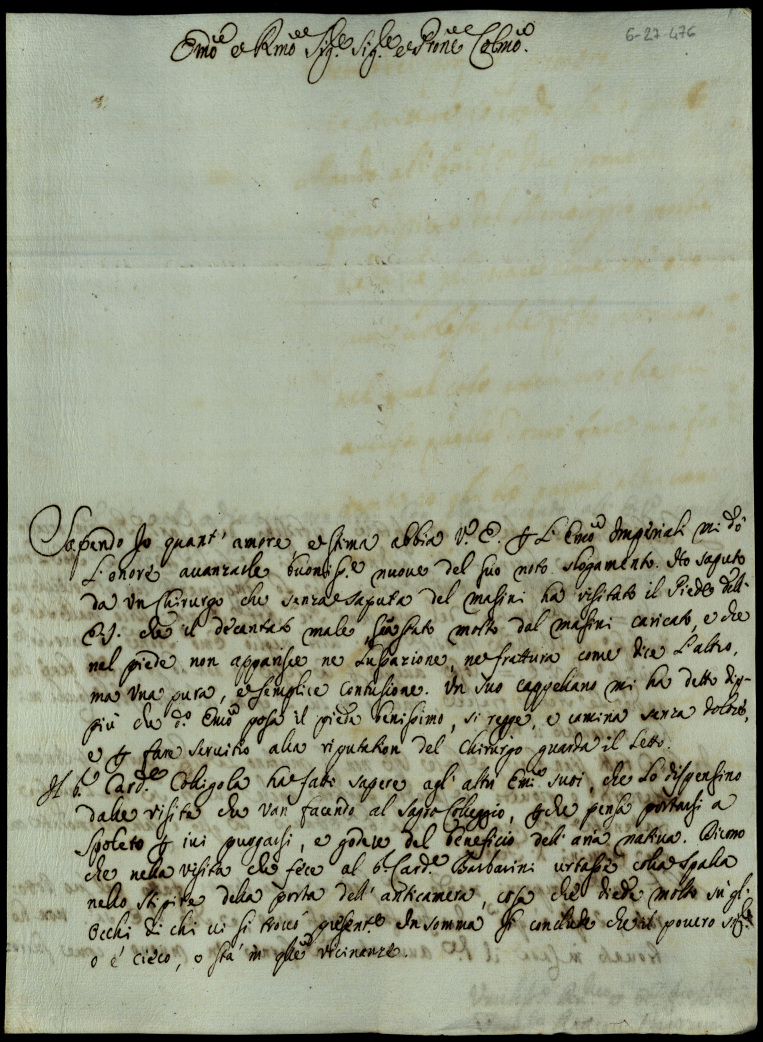 6-27-476
Emo e Rmo Sig.re Sig.re e Prone Colmo.
Sapendo Jo quant' amore, e stima abbia V. E. p L'Emo Imperiali mi dò
L'onore avanzarle buonis.e nuove del suo noto slogamento. Ho saputo
da un Chirurgo che senza saputa del masini ha visitato il Piede dell'
E.S. che il decantato male sia stato molto dal masini caricato, e che
nel piede non apparisce ne Lussazione, ne frattura come dice L'altro,
ma una pura, e semplice contusione. Un suo cappellano mi ha detto dip-
più che d.o Emo posa il piede benissimo, si regge, e camina senza dolore,
e p fare servitio alla riputation del Chirurgo guarda il Letto.
Il S. Card.le Colligola ha fatto sapere agl' altri Emi suoi, che Lo dispensino
dalle visite che van facendo al Sagro Colleggio, p che pensa portarsi a
Spoleto p ivi purgarsi, e godere del beneficio dell' aria nativa. Dicono
che nella visita che fece al S. Card.e Barbarini urtasse colla Spalla
nello stipite della porta dell' anticamera, cosa che diede molto su gl'
occhi di chi vi si trovò presente. In somma si conclude che il povero Sig.re
o è cieco, o stà in quelle vicinanze.